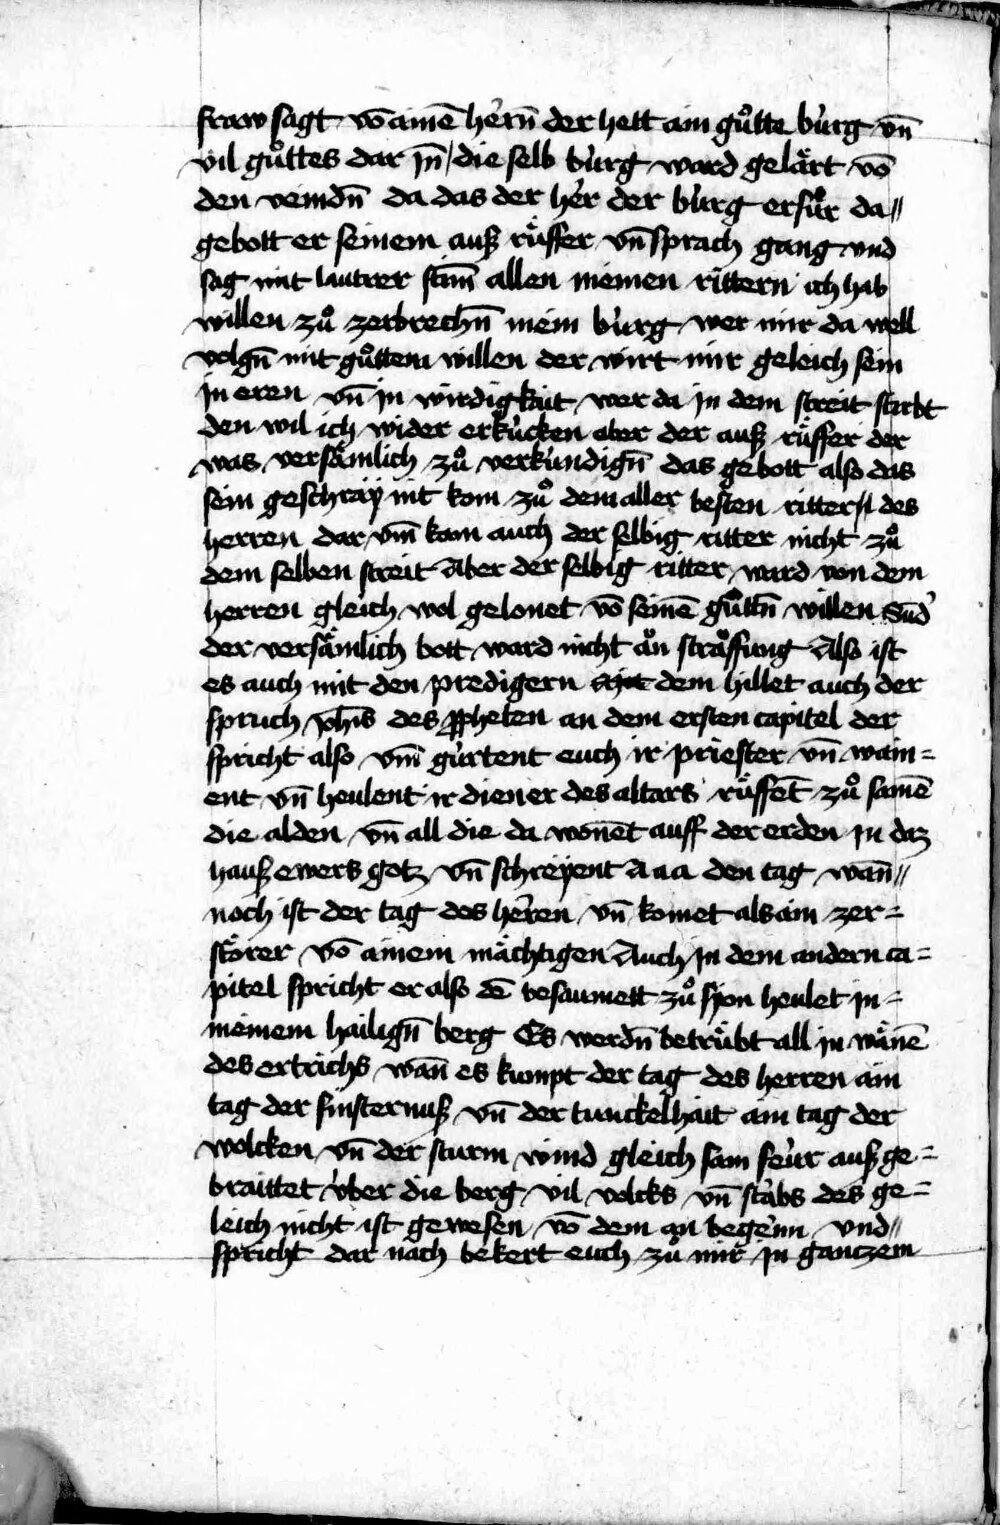 fraw sagt vō ainē hern̄ der hett ain gůtte burg vn̄
vil gůttes dar jn̄ / die selb burg ward gelärt vō
den veindn̄ da das der her der burg erfůr da〃
gebott er seinem auß rüffer vn̄ sprach gang vnd
sag mit lautrer stim̄ allen meinen rittern ich hab
willen zů zerbrechn̄ mein burg wer mir da well
volgn̄ mit gůttem willen der wirt mir geleich sein
jn eren vn̄ jn wirdigkait wer da jn dem streit stirbt
den wil ich wider erkücken aber der auß rüffer der
was versämlich zů verkundign̄ das gebott also das
sein geschraÿ nit kom zů dem aller besten ritter des
herren dar vm̄ kam auch der selbig ritter nicht zů
dem selben streit Aber der selbig ritter ward von dem
herren gleich wol gelonet vō seinē gůttn̄ willen Sūd'
der versämlich bott ward nicht ăn străffung Also ist
es auch mit den predigern dem hillet auch der
spruch joh̄is des ꝓpheten an dem ersten capitel der
spricht also vm̄ gürtent euch ir priester vn̄ wain=
ent vn̄ heulent ir diener des altars rüffēt zů samē
die alden vn̄ all die da wonēt auff der erden jn daz
hauß ewers gotz vn̄ schreÿent A a a den tag wan̄〃
noch ist der tag des herren vn̄ komet als ain zer=
störer vō ainem mächtigen Auch jn dem andern ca=
pitel spricht er also dē besaumett zů sÿon heulet jn=
meinem hailign̄ berg Es werdn̄ betrübt all in wänē
des ertrichs wan̄ es kumpt der tag des herren ain
tag der finsternuß vn̄ der tunckelhait ain tag der
wolcken vn̄ der sturm wind gleich sam feur auß ge=
braittet vber die berg vil volcks vn̄ stabs des ge=
leich nicht ist gewesen vō dem an begenn vnd〃
spricht dar nach bekert euch zů mir jn ganczem